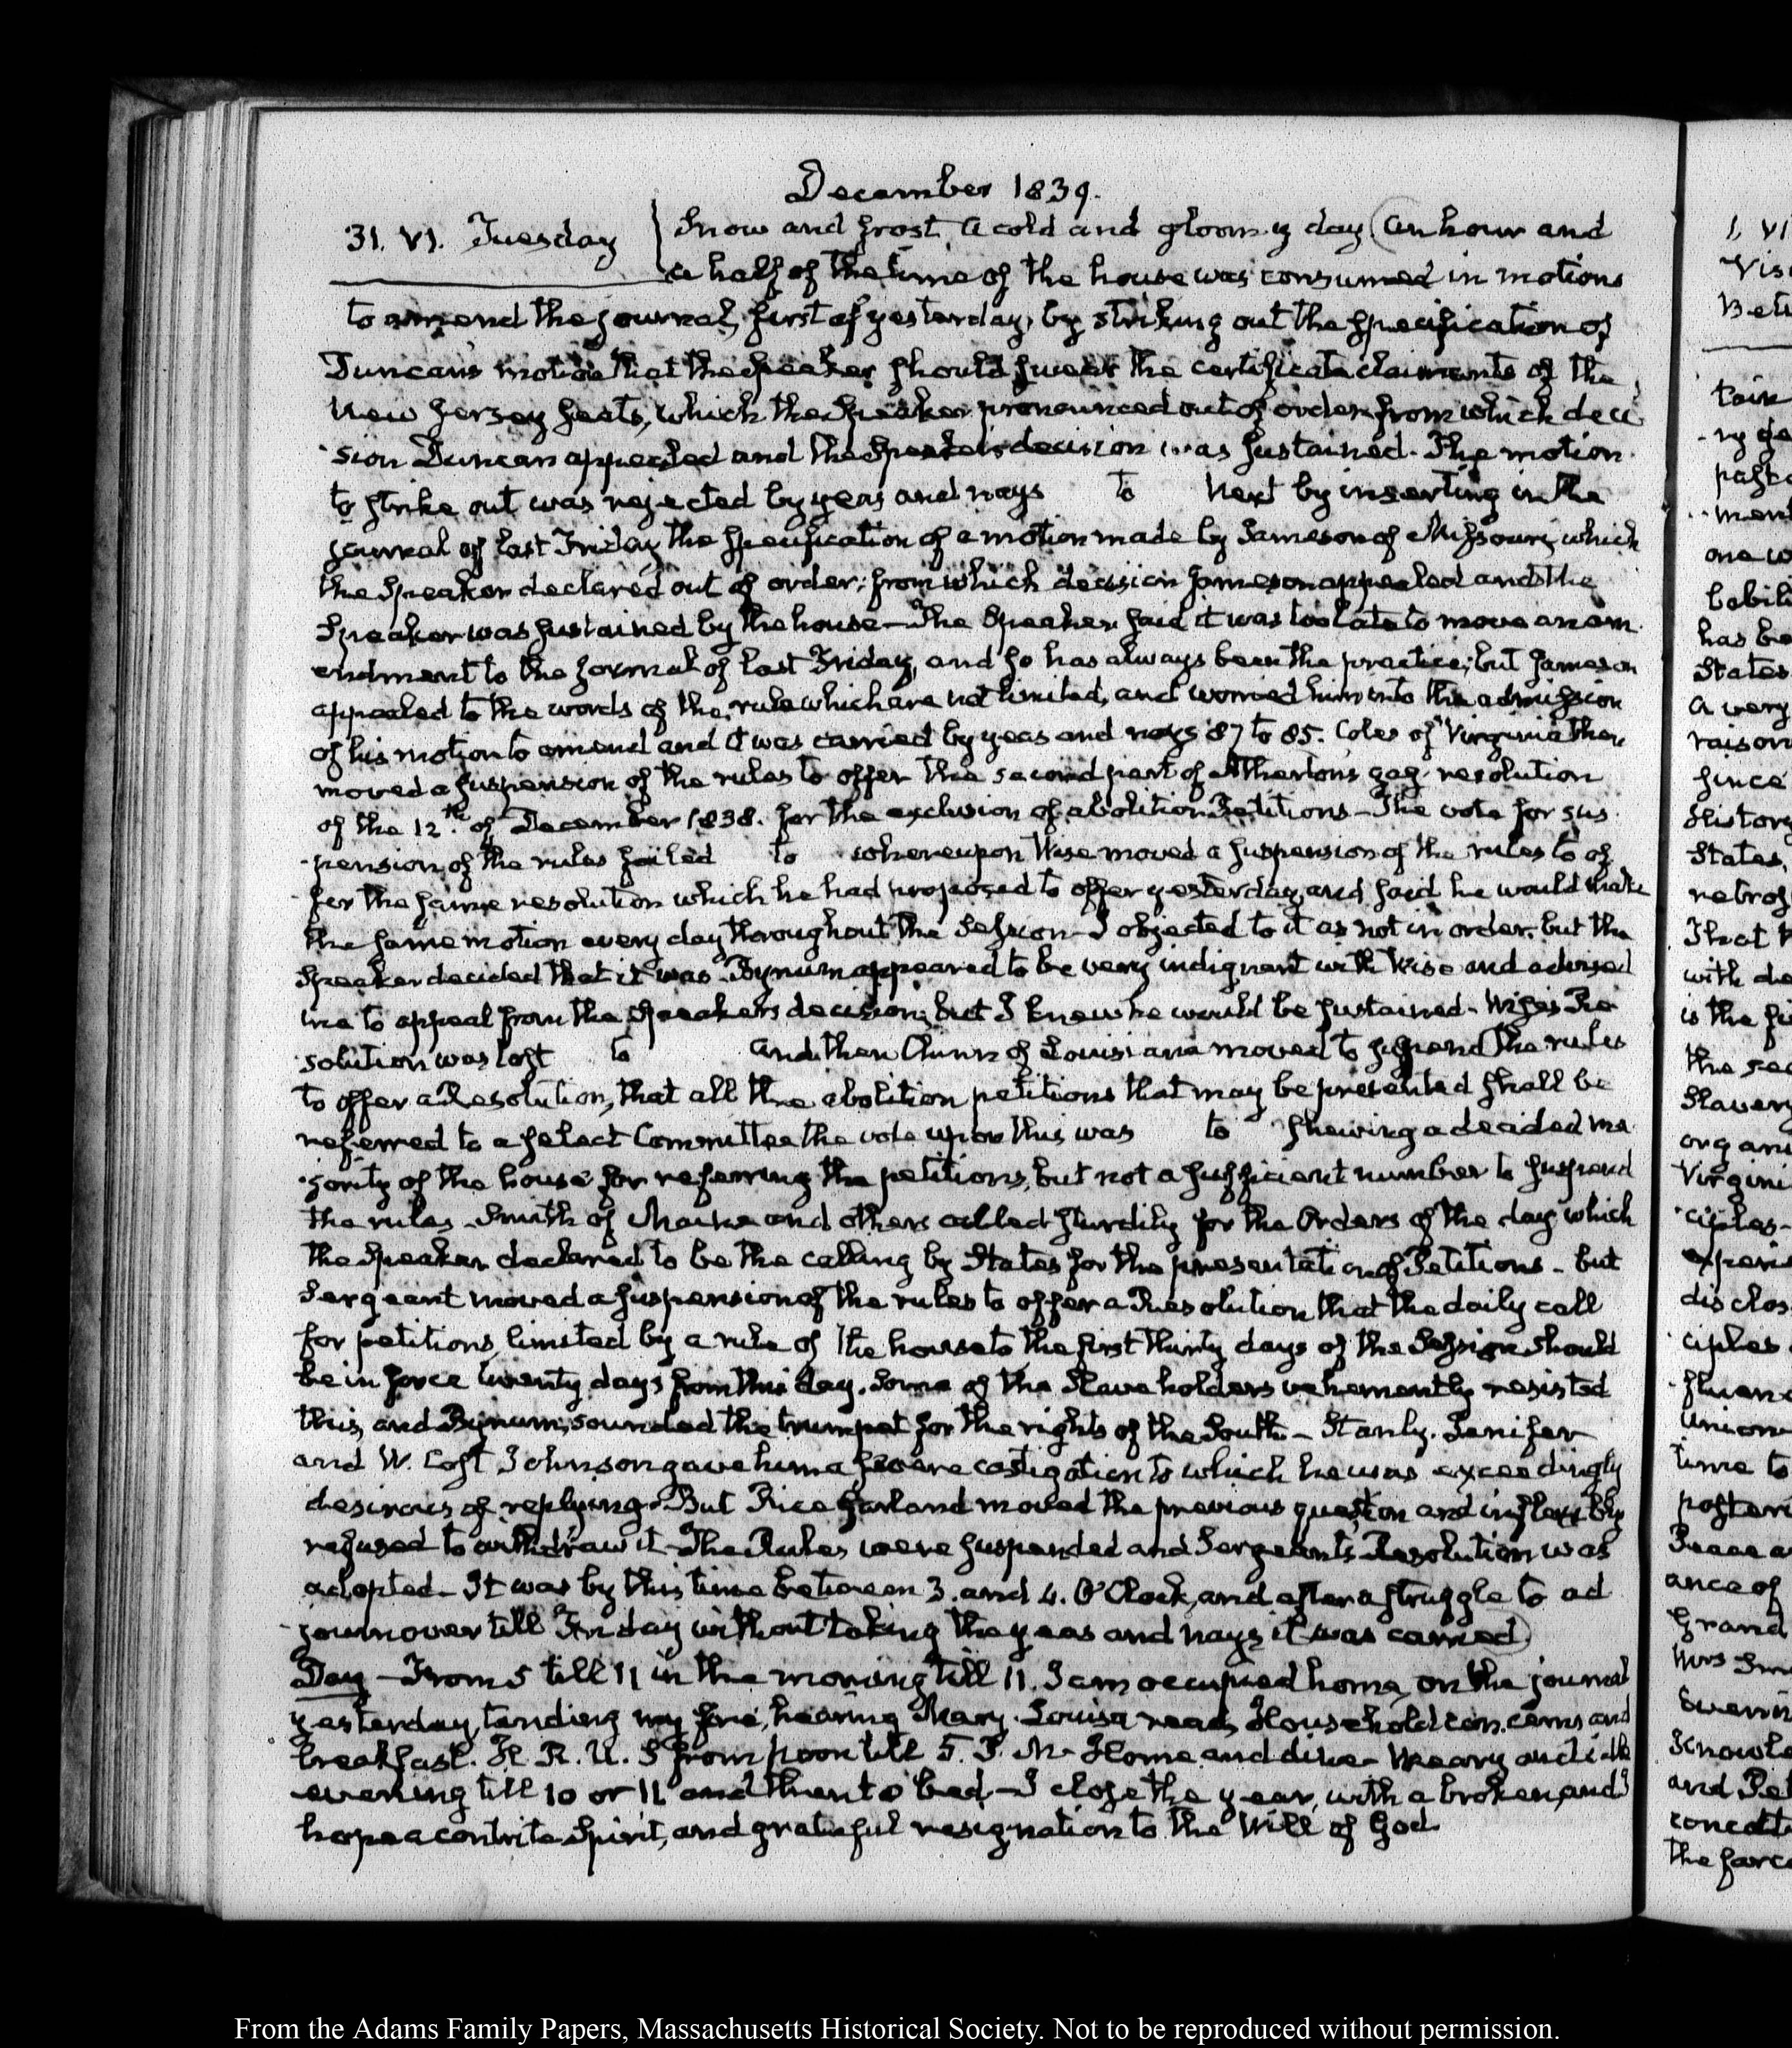 December 1839.
31. VI. Tuesday
Snow and frost. A cold and gloomy day (An hour and
a half of the time of the house was consumed in motions
to amend the journal, first of yesterday, by striking out the specification of
Duncan's motion that the Speaker should swear the certificate claimants of the
New Jersey seats, which the Speaker pronounced out of order, from which deci
sion Duncan appealed and the Speaker's decision was sustained. The motion
to strike out was rejected by yeas and nays to Next by inserting in the
journal of last Friday the specification of a motion made by Jameson of Missouri, which
the Speaker declared out of order; from which decision Jameson appealed and the
Speaker was sustained by the house—The Speaker said it was too late to move an am
endment to the jornal of last Friday, and so has always been the practice; but Jameson
appealed to the words of the rule which are not limited, and worried him into the admission
of his motion to amend and it was carried by yeas and nays 87 to 85. Coles of Virginia then
moved a suspension of the rules to offer the second part of Atherton's gag-resolution
of the 12th. of December 1838. for the exclusion of abolition Petitions—The vote for sus
pension of the rules failed to whereupon Wise moved a suspension of the rules to of
fer the same resolution which he had proposed to offer yesterday, and said he would make
the same motion every day throughout the Session—I objected to it as not in order, but the
Speaker decided that it was. Bynum appeared to be very indignant with Wise and advised
me to appeal from the Speaker's decision, but I knew he would be sustained—Wise's Re
solution was lost to and then Chinn of Louisiana moved to suspend the rules
to offer a Resolution, that all the abolition petitions that may be presented shall be
referred to a select Committee the vote upon this was to shewing a decided ma
jority of the house for referring the petitions, but not a sufficient number to suspend
the rules—Smith of Maine and others called sturdily for the Orders of the day which
the Speaker declared to be the calling by States for the presentation of Petitions—but
Sergeant moved a suspension of the rules to offer a Resolution that the daily call
for petitions, limited by a rule of the house to the first thirty days of the Session should
be in force twenty days from this day. Some of the Slave holders vehemently resisted
this, and Bynum, sounded the trumpet for the rights of the South—Stanly. Jenifer
and W. Cost Johnson gave him a severe castigation to which he was exceedingly
desirous of replying. But Rice Garland moved the previous question and inflexibly
refused to withdraw it—The Rules were suspended and Sergeant's Resolution was
adopted—It was by this time between 3. and 4. O'Clock, and after a struggle to ad
journ over till Friday without taking the yeas and nays it was carried)
Day—From 5 till 11 in the morning till 11. I am occupied home, on the journal
yesterday, tending my fire, hearing Mary-Louisa read, Household concerns and
breakfast. H. R. U. S from noon till 5. P. M—Home and dine—Weary and idle
evening till 10 or 11 and then to bed—I close the year, with a broken, and I
hope a contrite Spirit, and grateful resignation to the Will of God
From the Adams Family Papers, Massachusetts Historical Society. Not to be reproduced without permission.